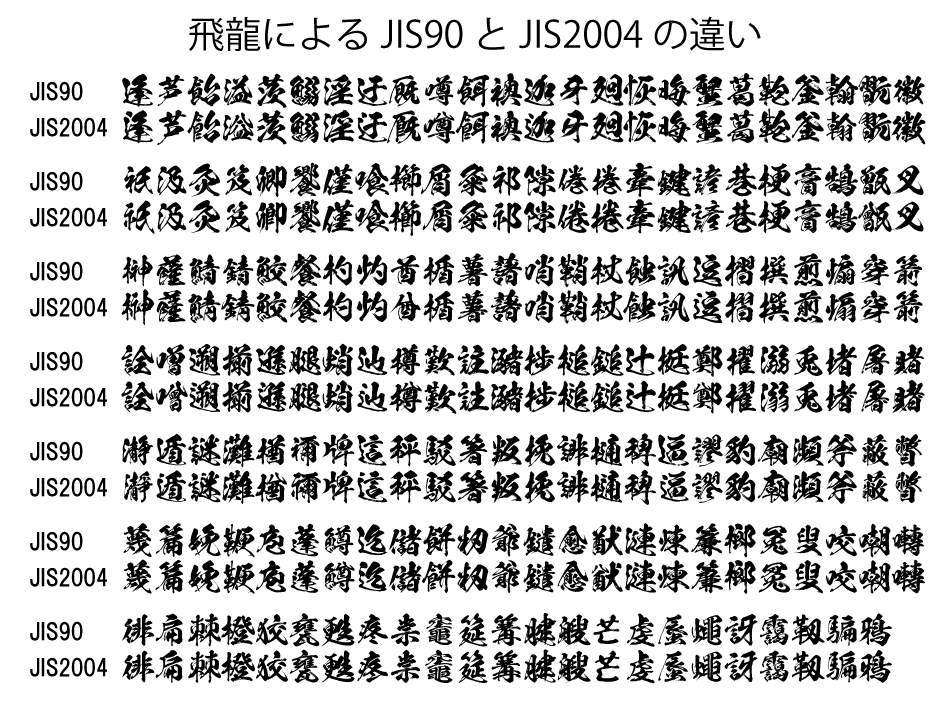 飛龍による JIS90 と JIS2004 の違い
JIS90 逢芦飴溢茨鰯淫迂厩噂餌襖迦牙廻恢晦蟹葛鞄釜翰翫徽
JIS2004 逢芦飴溢茨鰯淫迂厩噂餌襖迦牙廻恢晦蟹葛鞄釜翰翫徽
JIS90 祇汲灸笈卿饗僅喰櫛屑粂祁隙倦捲牽鍵諺巷梗膏鵠甑叉
JIS2004 祇汲灸笈卿饗僅喰櫛屑粂祁隙倦捲牽鍵諺巷梗膏鵠甑叉
JIS90 榊薩鯖錆鮫餐杓灼酋楯薯藷哨鞘杖蝕訊逗摺撰煎煽穿箭
JIS2004 榊薩鯖錆鮫餐杓灼酋楯薯藷哨鞘杖蝕訊逗摺撰煎煽穿箭
JIS90 詮噌遡揃遜腿蛸辿樽歎註瀦捗槌鎚辻挺鄭擢溺兎堵屠賭
JIS2004 詮噌遡揃遜腿蛸辿樽歎註瀦捗槌鎚辻挺鄭擢溺兎堵屠賭
JIS90 瀞遁謎灘楢禰牌這秤駁箸叛挽誹樋稗逼謬豹廟瀕斧蔽瞥
JIS2004 瀞遁謎灘楢禰牌這秤駁箸叛挽誹樋稗逼謬豹廟瀕斧蔽瞥
JIS90 蔑篇娩鞭庖蓬鱒迄儲餅籾爺鑓愈猷漣煉簾榔冤叟咬嘲囀
JIS2004 蔑篇娩鞭庖蓬鱒迄儲餅籾爺鑓愈猷漣煉簾榔冤叟咬嘲囀
JIS90 徘扁棘橙狡甕甦疼祟竈筵篝腱艘芒虔蜃蠅訝靄靱騙鴉
JIS2004 徘扁棘橙狡甕甦疼祟竈筵篝腱艘芒虔蜃蠅訝靄靱騙鴉